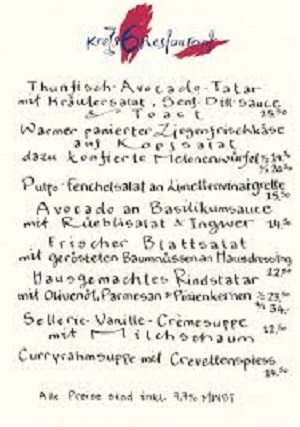 Kreis 6 Restaurant
Thunfisch-Avocado-Tatar
mit Kräutersalat, Senf-Dill-Sauce
& Toast
Warmer panierter Ziegenfrischkäse
auf Kopfsalat
dazu konfierte Melonenwürfel
Pulpo-Fenchelsalat an Limettenvinaigrette
15.50
Avocado an Basilikumsauce
mit Rüeblisalat & Ingwer 14.50
Frischer Blattsalat
mit gerösteten Baumnüssen an Hausdressing
12.50
Hausgemachtes Rindstatar
mit Olivenöl, Parmesan & Pinienkernen ½ 23.50
¹/₁ 34.-
Sellerie-Vanille-Crèmesuppe
mit Milchschaum 12.50
Curryrahmsuppe mit Crevettenspiess
14.50
Alle Preise sind inkl. 7.7% MWST